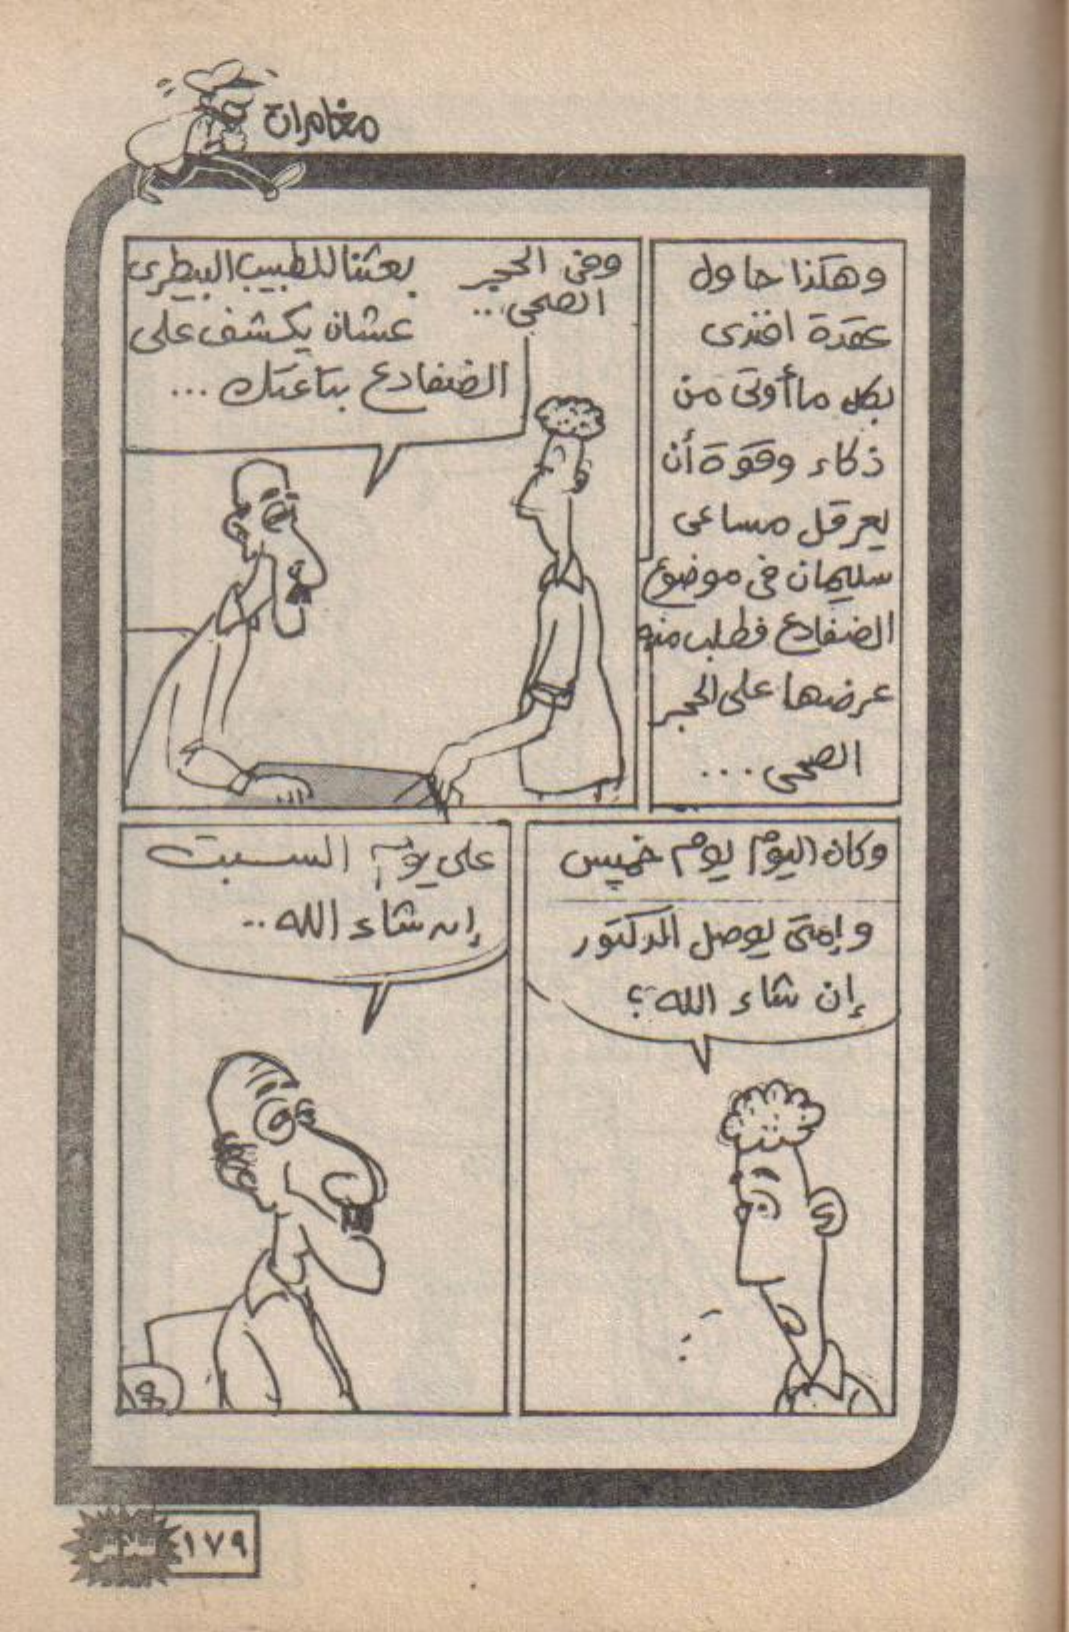 مغامرات
وهكذا حاول
عقدة افندى
بكل ما أوتى من
ذكاء وقوة أن
يعرقل مساعى
سليمان فى موضوع
الضفادع فطلب منه
عرضها على الحجر
الصحى...
وفى الحجر
الصحى..
بعثنا للطبيب البيطرى
عشان يكشف على
الضفادع بتاعتك...
وكان اليوم يوم خميس
وإمتى يوصل الدكتور
إن شاء الله؟
على يوم السبت
إن شاء الله..
١٧٩